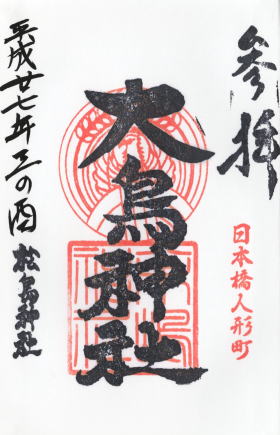 参拝
日本橋人形町
大鳥神社
平成廿七年三の酉
松島神社